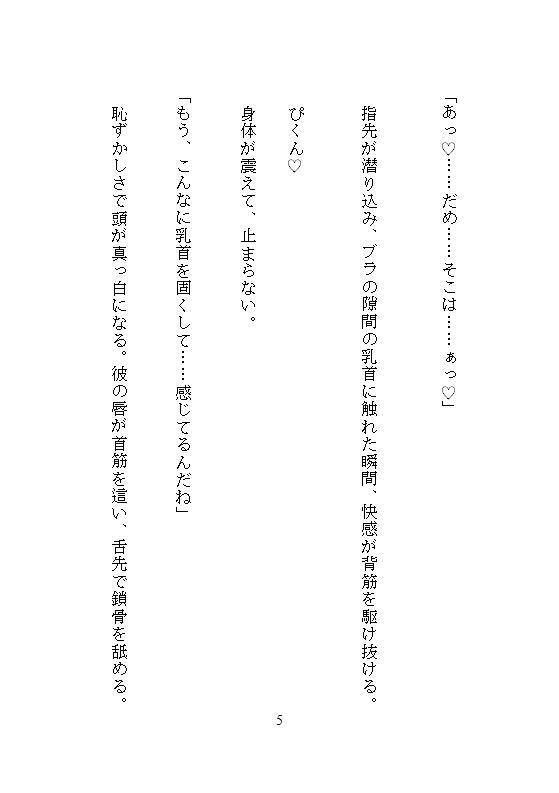 「あっ♡……だめ……そこは……ぁっ♡」
指先が潜り込み、ブラの隙間の乳首に触れた瞬間、快感が背筋を駆け抜ける。
ぴくん♡
身体が震えて、止まらない。
「もう、こんなに乳首を固くして……感じてるんだね」
恥ずかしさで頭が真っ白になる。彼の唇が首筋を這い、舌先で鎖骨を舐める。
5